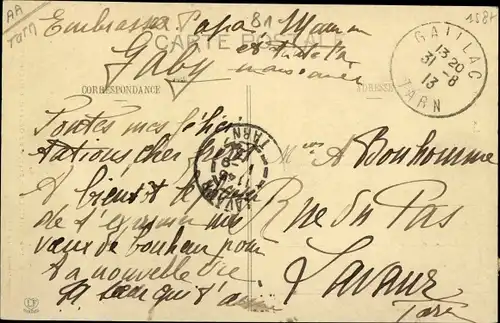 AA
Tarn
Embrasse Papa
81
Maman
1587
CARTE POSTALE
Gaby
et toute la
GAILLAC
13 20
31 -8
13
TARN
CORRESPONDANCE
ADRESSE
Toutes mes félici
tations cher
LAVAUR
TARN
A Bonhomme
A bientôt le
Rue du Pas
de t'
mes
vœux de bonheur pour
Lavaur
ta nouvelle vie
Ta sœur qui t'aime
Tarn